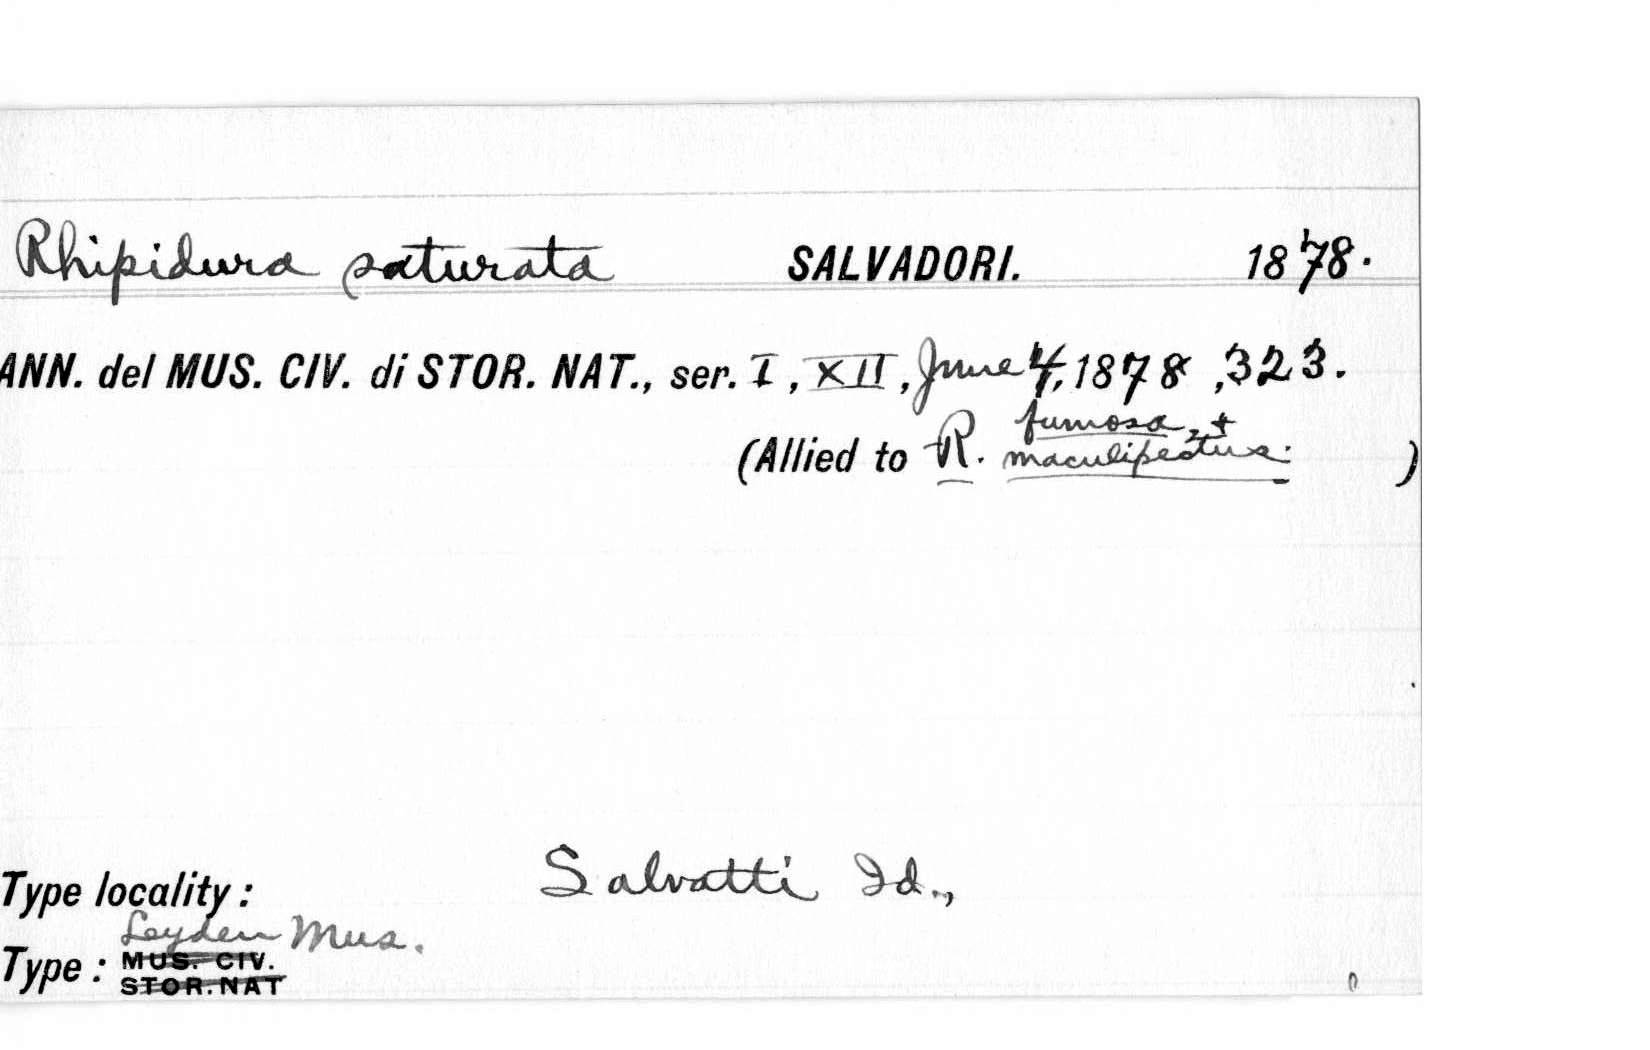 Rhipidura saturata SALVADORI. 1878.
ANN. del MUS. CIV. di STOR. NAT., ser. I, XII, June 4, 1878, 323.
fumosa, +
(Allied to R. maculipectus. )
Type locality: Salvatti Id.,
Leyden Mus.
Type: MUS. CIV.
STOR. NAT